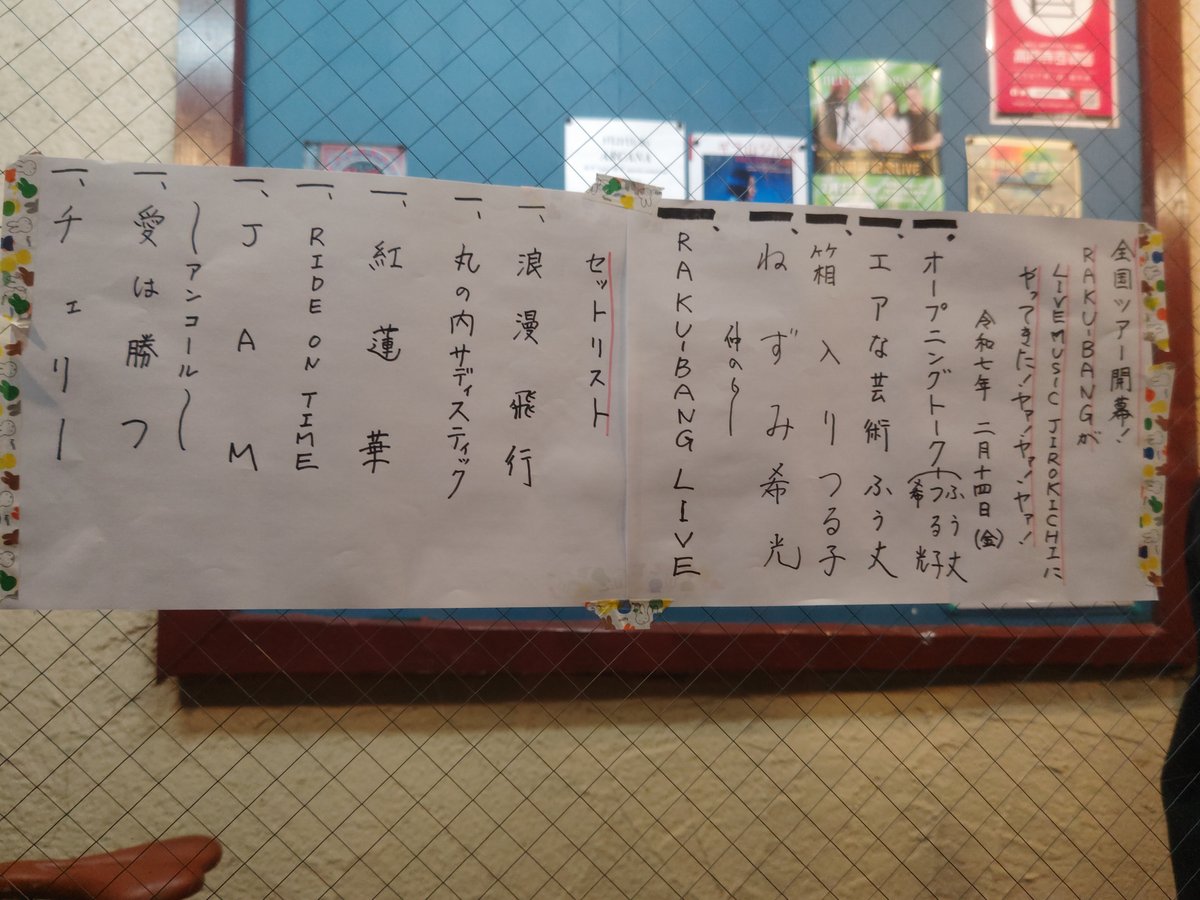 全国ツアー開幕!
RAKU-BANGが
LIVEMUSIC JIROKICHIに
やってきた!ヤァ!ヤァ!ヤァ!
令和七年 二月十四日(金)
一、オープニングトーク(ふう丈 つる子 希光
一、エアな芸術 ふう丈
一、箱入り つる子
一、ねずみ 希光
〜仲のり〜
一、RAKU-BANG LIVE
セットリスト
一、浪漫飛行
一、丸の内サディスティック
一、紅蓮華
一、RIDE ON TIME
一、JAM
〜アンコール〜
一、愛は勝つ
一、チェリー